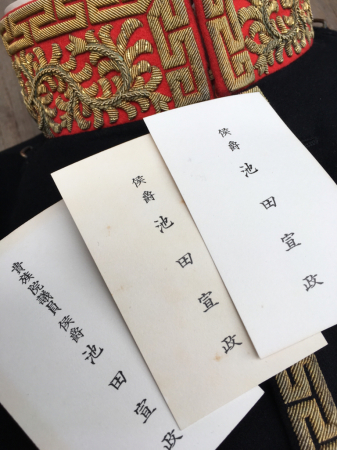 侯爵 池田宣政
侯爵 池田宣政
貴族院議員 侯爵 池田宣政